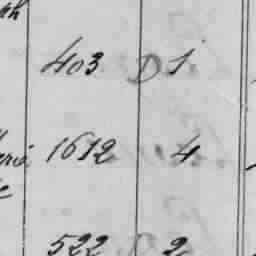 403 D 1
1612 4
522 2